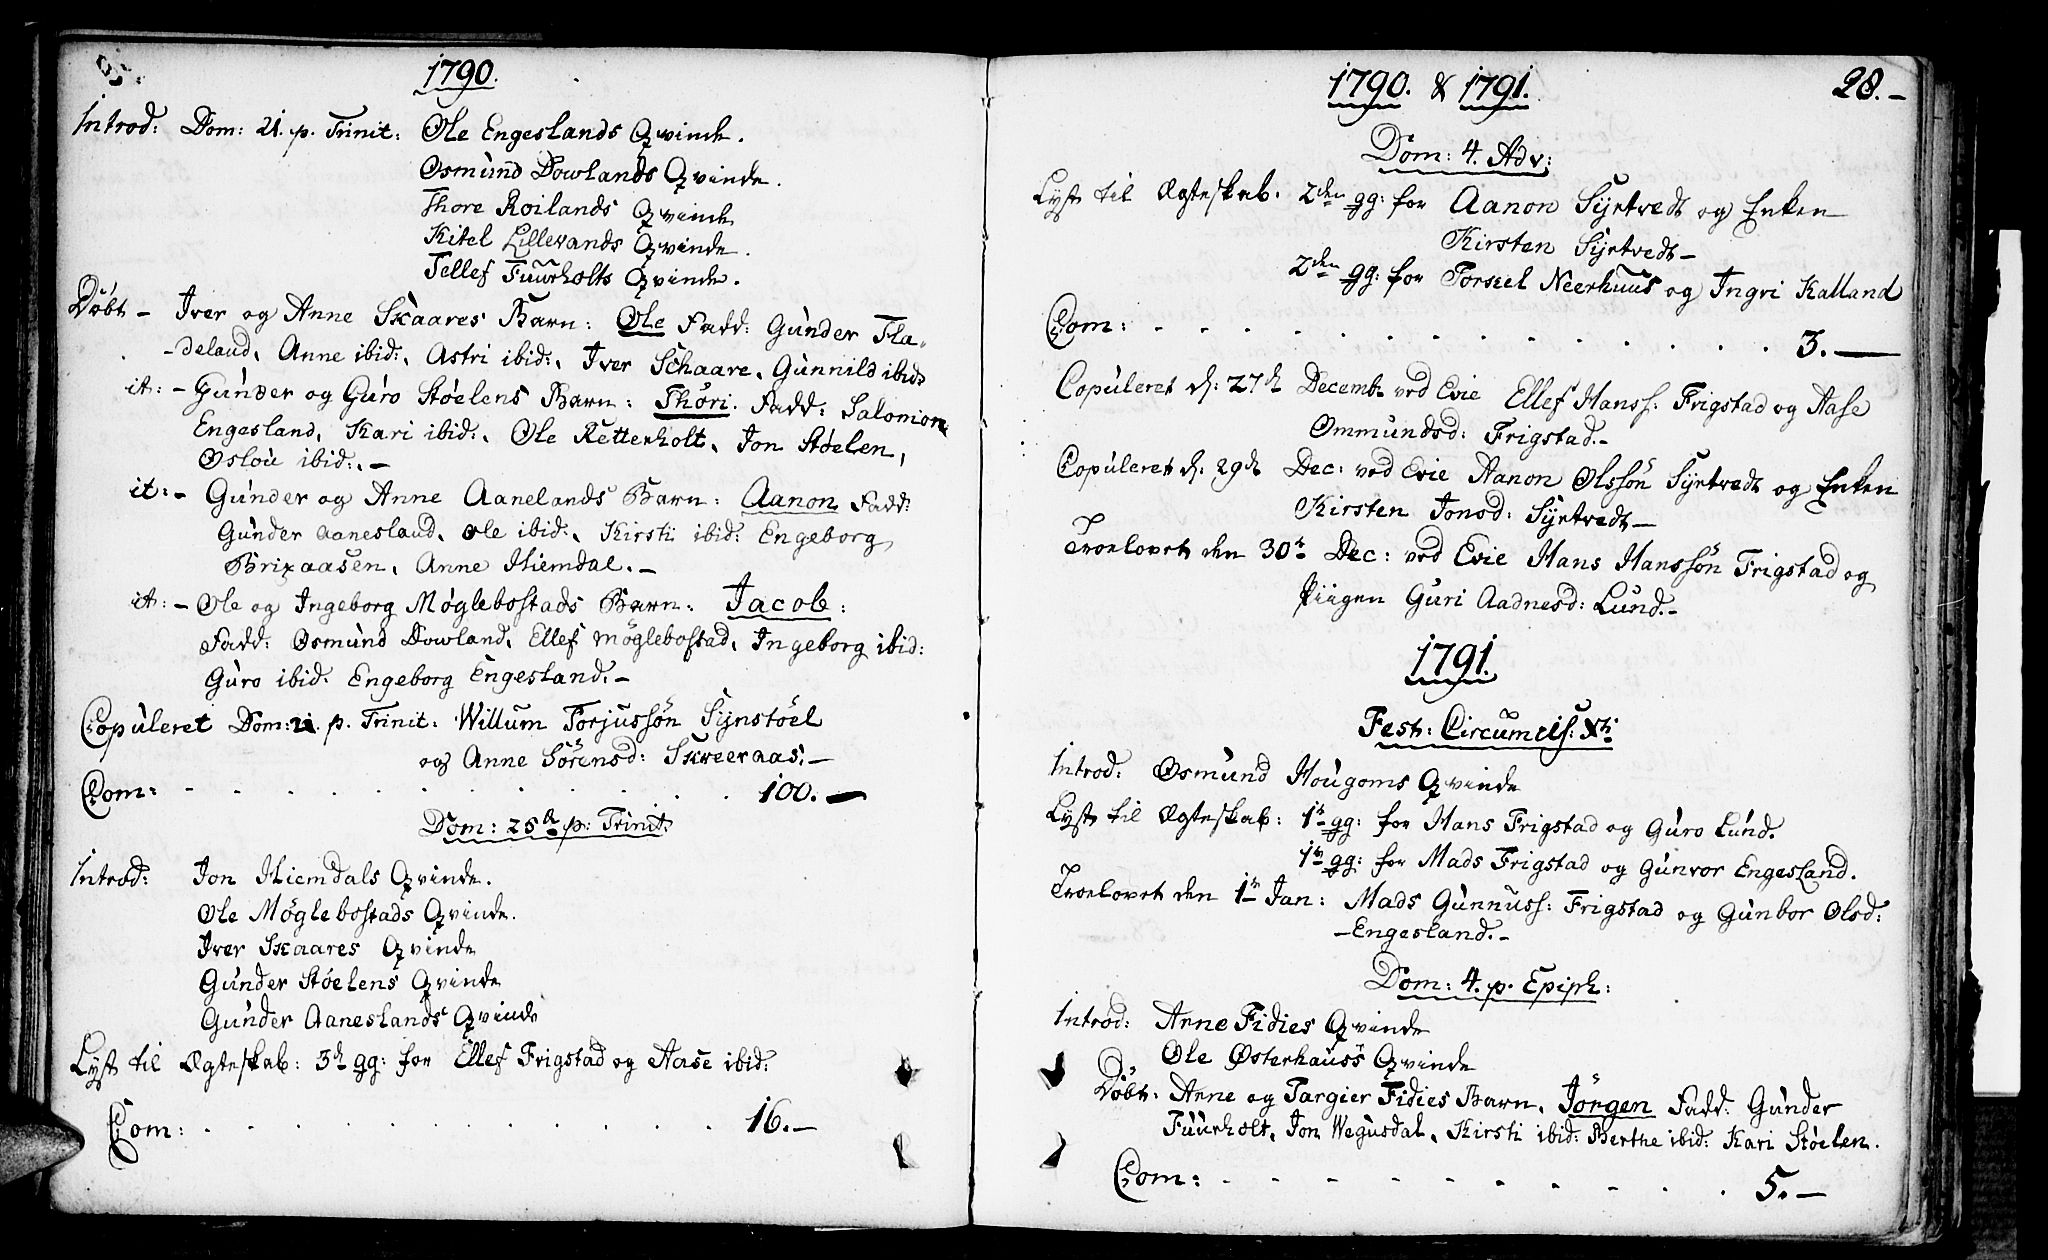 1790.
Introd: Dom: 21. p. Trinit: Ole Engeslands Qvinde.
Osmund Dowlands Qvinde.
Thore Roilands Qvinde
Kitel Lillevands Qvinde.
Tellef Fuurholts Qvinde.
Döbt - Iver og Anne Skaares Barn: Ole Fadd: Gunder Fla-
-deland, Anne ibid:, Astri ibid:, Iver Schaare, Gunnild ibid:
it: - Gunder og Guro Støelens Barn: Thori. Fadd: Salomon
Engesland, Kari ibid:, Ole Retterholt, Jon Støelen,
Oslou ibid:. -
it: - Gunder og Anne Aanelands Barn: Aanon Fadd:
Gunder Aanesland, Ole ibid:, Kirsti ibid: Engeborg
Brixaasen, Anne Hiemdal. -
it: - Ole og Ingeborg Møglebostads Barn: Jacob:
Fadd: Osmund Dowland, Ellef Møglebostad, Ingeborg ibid:
Guro ibid. Engeborg Engesland. -
Copuleret Dom: 21. p. Trinit: Willum Torjussøn Synstöel
og Anne Sörensd: Skreeraas. -
Com: - - - - - - - - - - - - 100. -
Dom: 25de p: Trinit:
Introd: Jon Hiemdals Qvinde.
Ole Møglebostads Qvinde.
Iver Skaares Qvinde
Gunder Støelens Qvinde
Gunder Aaneslands Qvinde
Lyst til Ægteskab: 3de gg: for Ellef Frigstad og Aase ibid:
Com: . . . . . . . . . . . . 16. -
1790. & 1791. 28. -
Dom: 4. Adv:
Lyst til Ægteskab. 2den gg: for Aanon Syrtvedt og Enken
Kirsten Syrtvedt -
2den gg: for Torkel Neerhuus og Ingri Kalland
Com: - - - - - - - - - - - - 3. -
Copuleret d: 27de Decembr ved Evie Ellef Hanss: Frigstad og Aase
Ommundsd: Frigstad. -
Copuleret d. 29de Dec: ved Evie Aanon Olssön Syrtvedt og Enken
Kirsten Jonsd: Syrtvedt -
Troelovet den 30te Dec: ved Evie Hans Hanssön Frigstad og
Piigen Guri Aadnesd: Lund. -
1791.
Fest: Circumcis: Xti
Introd: Osmund Hougoms Qvinde
Lyst til Ægteskab: 1te gg: for Hans Frigstad og Guro Lund.
1te gg: for Mads Frigstad og Gunvor Engesland.
Troelovet den 1te Jan: Mads Gunnuss: Frigstad og Gunbor Olsd:
-Engesland. -
Dom: 4. p. Epiph:
Introd: Arne Fidies Qvinde
Ole Østerhauss Qvinde
Döbt. Arne og Targier Fidies Barn. Jörgen Fadd: Gunder
Fuurholt, Jon Wegusdal, Kirsti ibid: Berthe ibid: Kari Støelen.
Com: - - - - - - - - - - - 5. -